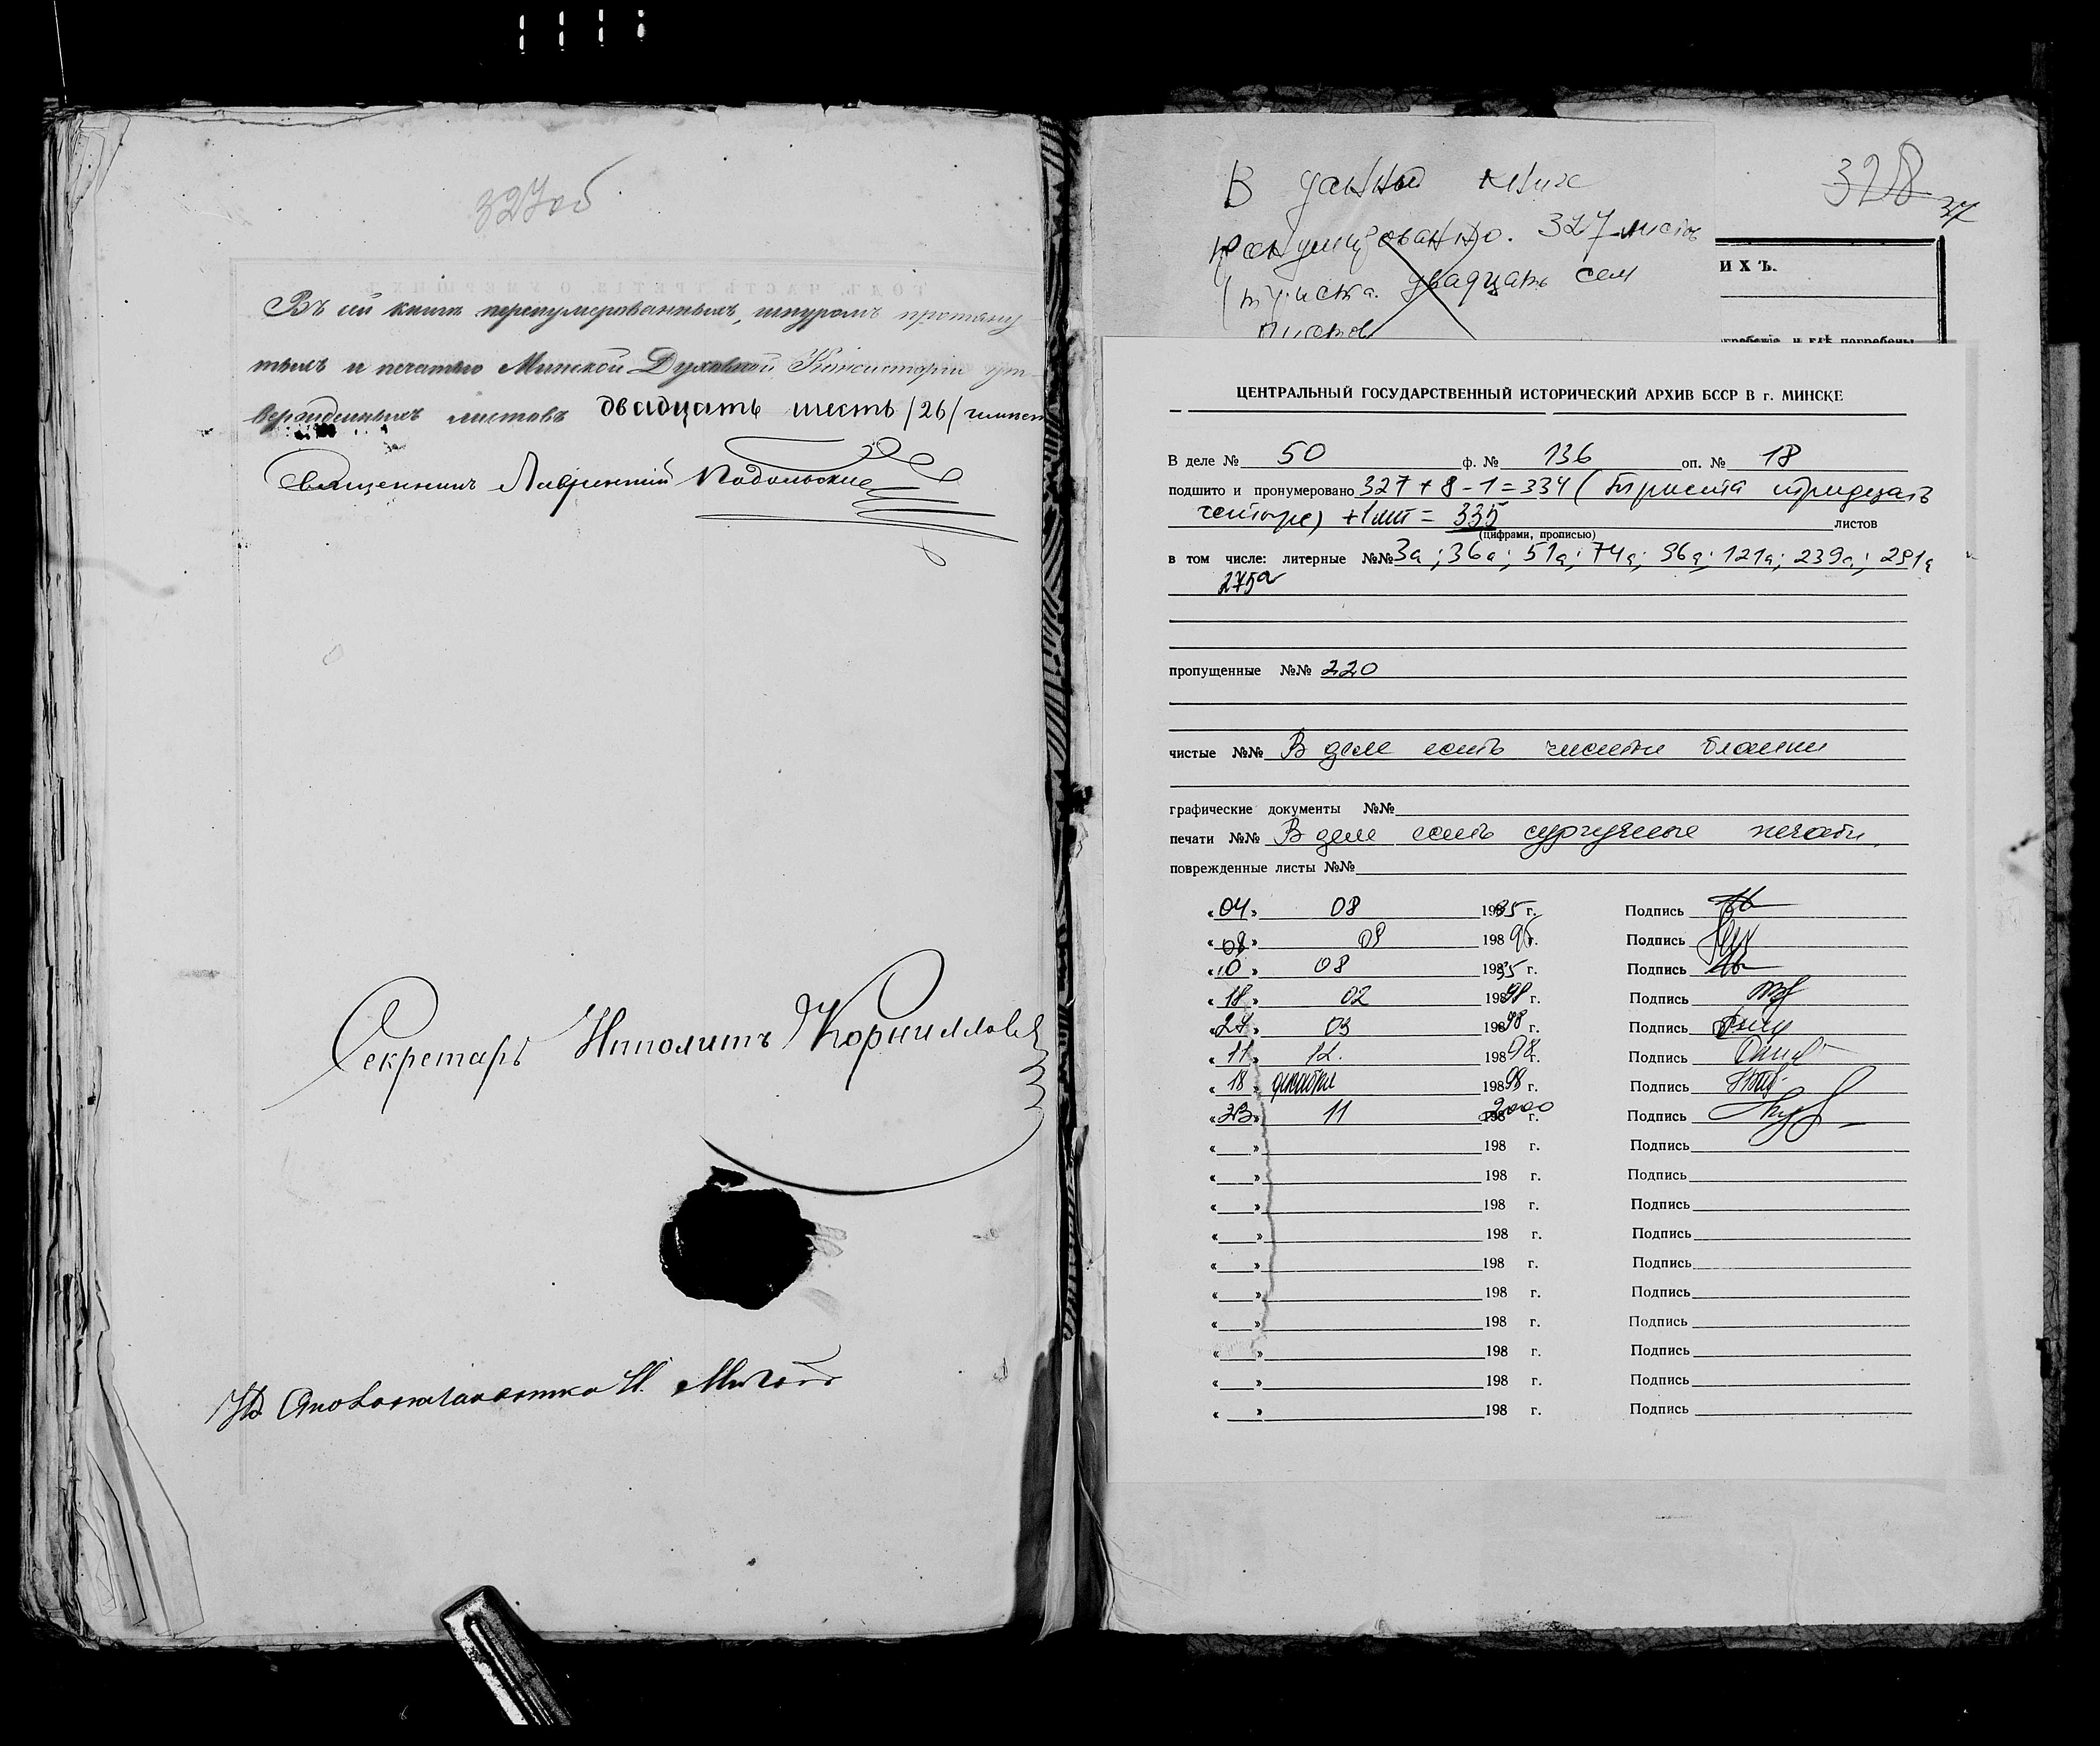 327об
Въ сей книгѣ перенумерованныхъ, шнуромъ протяну-
тыхъ и печатью Минской Духовной Консисторіи ут-
вержденныхъ листовъ двадцать шесть /26/ листовъ
Священникъ Лаврентій Подольскій
Секретарь Ипполитъ Корнилловъ
И.д. Столоначальника И.
В данной книге
пронумеровано. 327 листов
(триста двадцать сем
листов
328
37
ИХЪ.
погребеніе и гдѣ погребены
ЦЕНТРАЛЬНЫЙ ГОСУДАРСТВЕННЫЙ ИСТОРИЧЕСКИЙ АРХИВ БССР В г. МИНСКЕ
В деле № 50 ф. № 136 оп. № 18
подшито и пронумеровано 327 + 8 - 1 = 334 (триста тридцать
четыре) +1лит = 335 листов
(цифрами, прописью)
в том числе: литерные №№ 3а; 36а; 51а; 74а; 96а; 121а; 239а; 291а
275а
пропущенные №№ 220
чистые №№ В деле есть чистые бланки
графические документы №№
печати №№ В деле есть сургучные печати.
поврежденные листы №№
«04» 08 1995 г. Подпись
«08» 09 198 95 г. Подпись
«10» 08 1995 г. Подпись
«18» 02 198 98 г. Подпись
«27» 03 198 98 г. Подпись
«11» 12. 198 98 г. Подпись
«18» декабря 198 98 г. Подпись
«23» 11 198 2000 г. Подпись
« » 198 г. Подпись
« » 198 г. Подпись
« » 198 г. Подпись
« » 198 г. Подпись
« » 198 г. Подпись
« » 198 г. Подпись
« » 198 г. Подпись
« » 198 г. Подпись
« » 198 г. Подпись
« » 198 г. Подпись